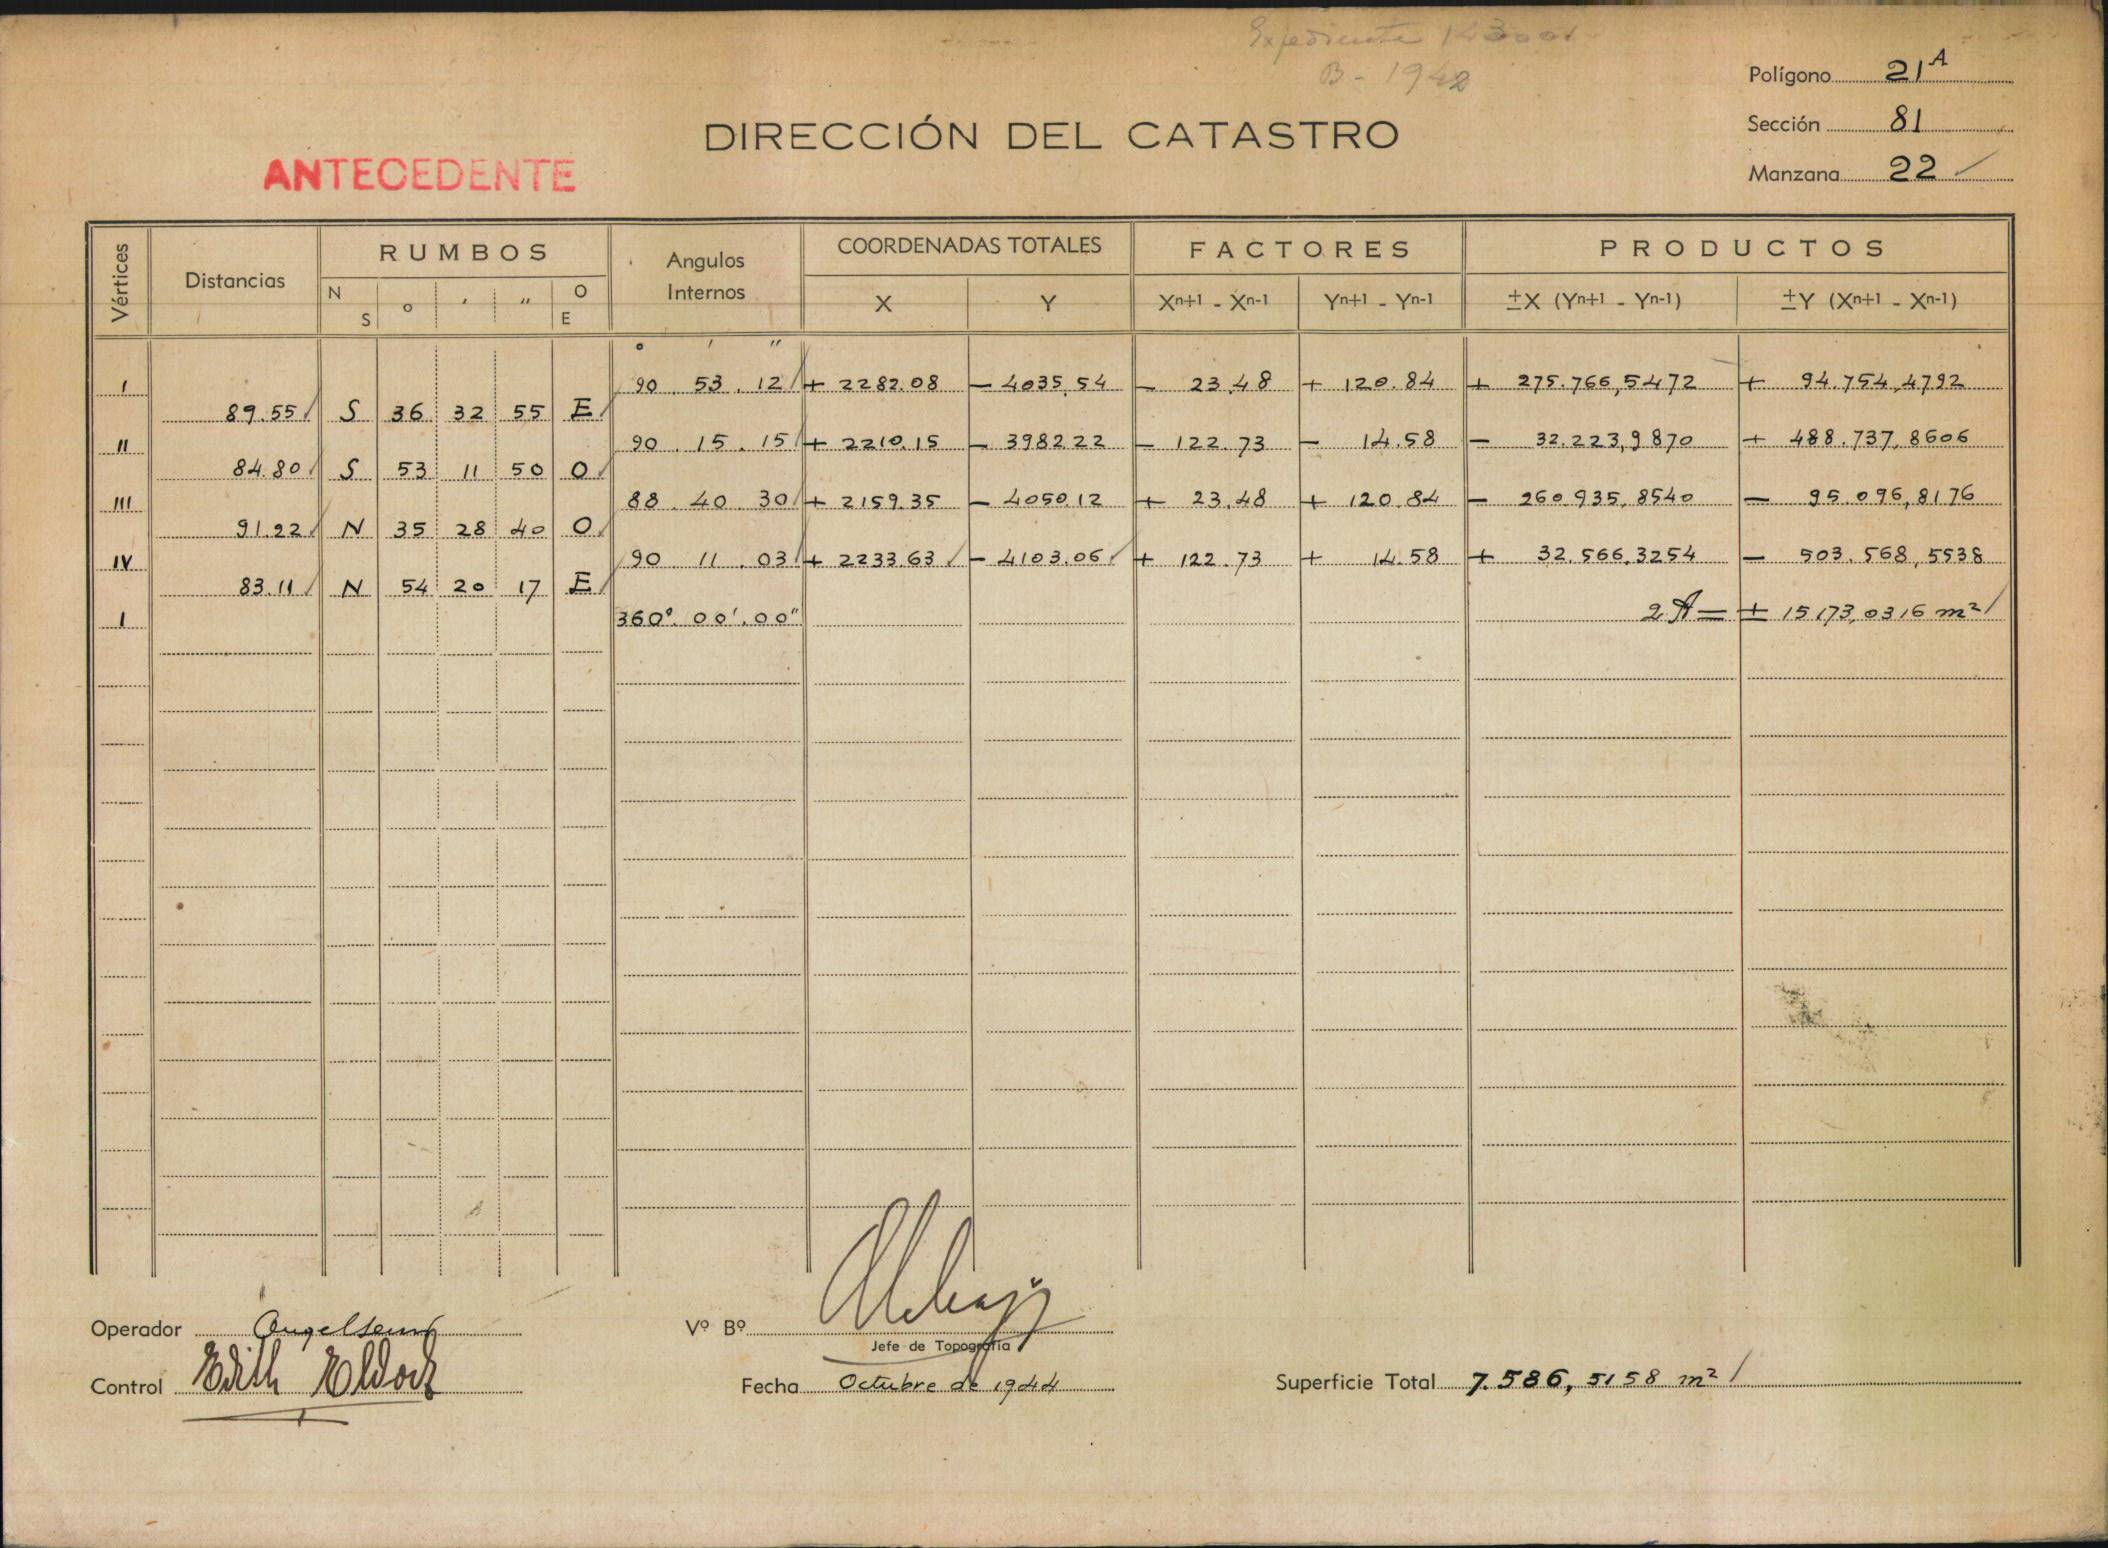 Expediente
B - 1942
Polígono 21 A
Sección 81
Manzana 22
DIRECCIÓN DEL CATASTRO
ANTECEDENTE
Vértices Distancias RUMBOS Angulos Internos COORDENADAS TOTALES FACTORES PRODUCTOS
N S o ' " O E X Y Xn+1 - Xn-1 Yn+1 - Yn-1 ±X (Yn+1 - Yn-1) ±Y (Xn+1 - Xn-1)
o ' "
I 90 . 53 . 12 + 2282.08 - 4035,54 - 23.48 + 120.84 + 275.766,5472 + 94.754,4792
89.55 S 36 32 55 E
II 90 . 15 . 15 + 2210.15 - 3982.22 - 122.73 - 14.58 - 32.223,9870 + 488.737,8606
84.80 S 53 11 50 O
III 88 . 40 . 30 + 2159.35 - 4050.12 + 23.48 + 120.84 - 260.935,8540 - 95.096,8176
91.22 N 35 28 40 O
IV 90 11 . 03 + 2233.63 - 4103.06 + 122.73 + 14.58 + 32.566,3254 - 503.568,5538
83.11 N 54 20 17 E
I 360°.00'.00" 2A = ± 15173,0316 m²
Operador
Vº Bº
Jefe de Topografía
Control Edith
Fecha Octubre de 1944
Superficie Total 7.586,5158 m²